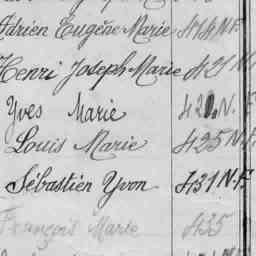 Adrien Eugène Marie 414 N.F.
Henri Joseph Marie 421 N
Yves Marie 42 N.F.
Louis Marie 425 N.F.
Sébastien Yvon 431 N.F.
François Marie 435